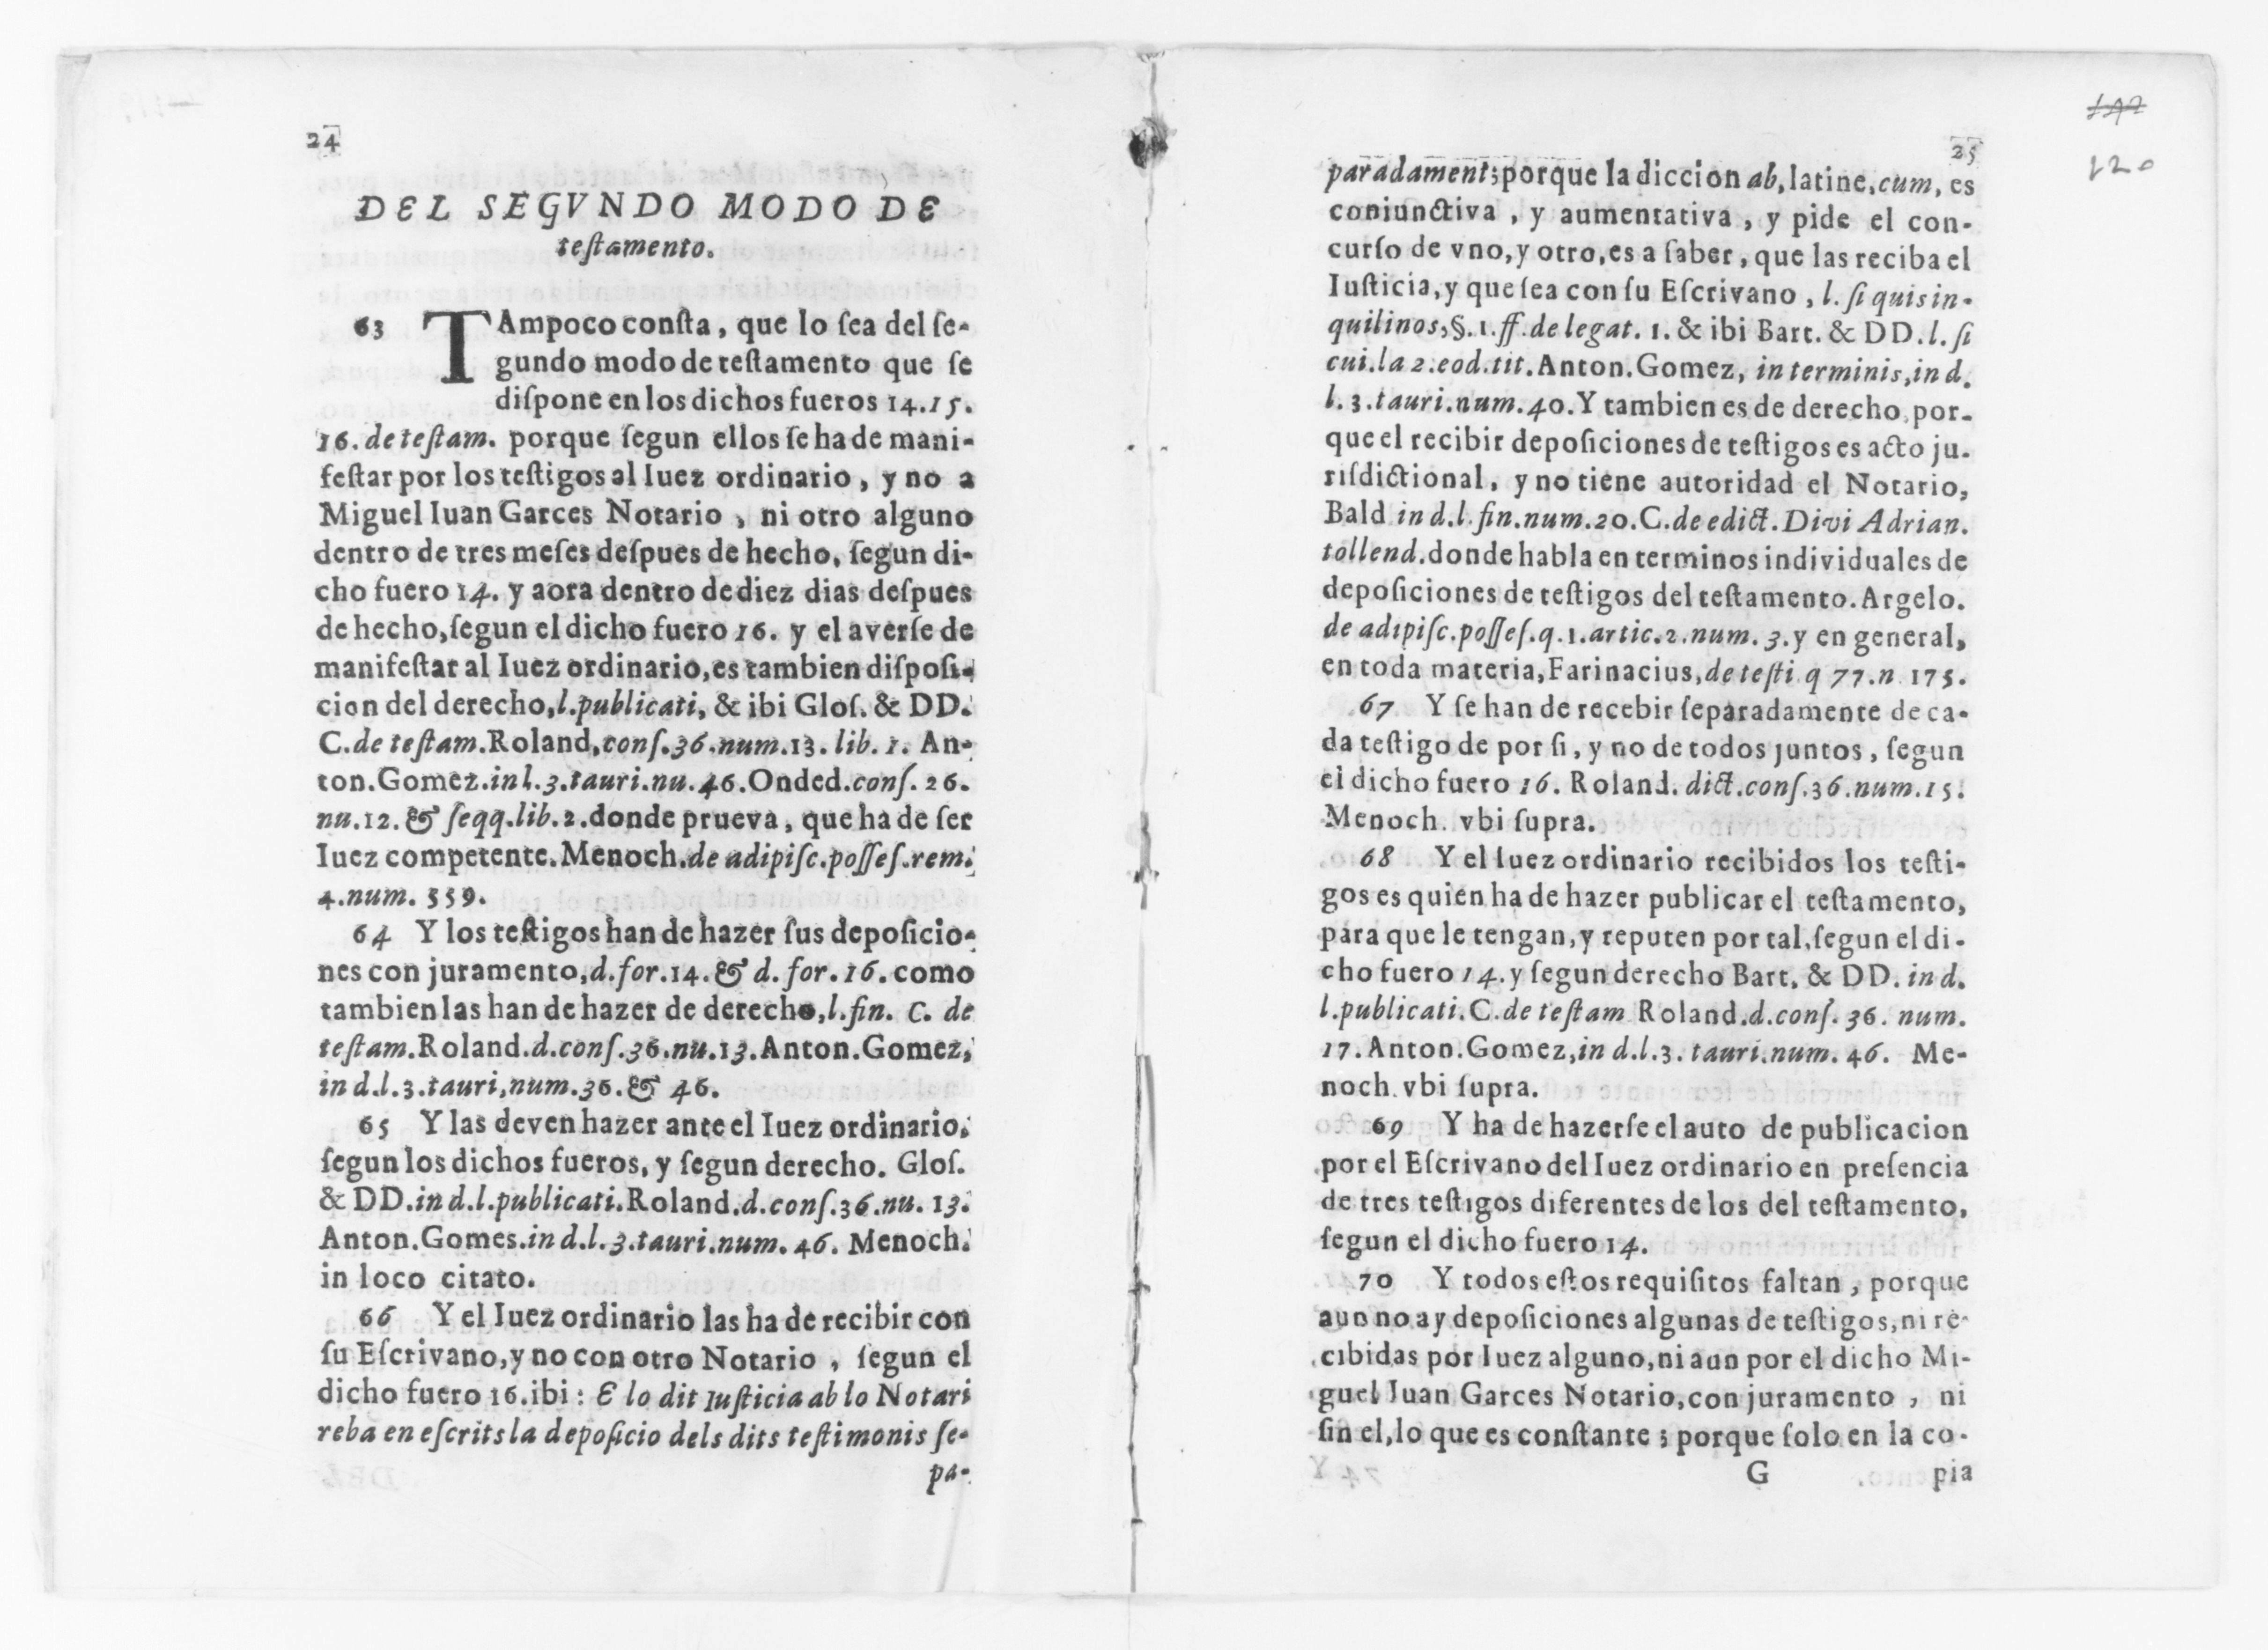 24
DEL SEGVNDO MODO DE
teſtamento.
63 TAmpoco conſta, que lo ſea del ſe-
gundo modo de teſtamento que ſe
diſpone en los dichos fueros 14.15.
16. de teſtam. porque ſegun ellos ſe ha de mani-
feſtar por los teſtigos al Iuez ordinario, y no a
Miguel Iuan Garces Notario, ni otro alguno
dentro de tres meſes deſpues de hecho, ſegun di-
cho fuero 14. y aora dentro de diez dias deſpues
de hecho, ſegun el dicho fuero 16. y el averſe de
manifeſtar al Iuez ordinario, es tambien diſpoſi-
cion del derecho, l.publicati, & ibi Gloſ. & DD.
C.de teſtam.Roland, conſ.36.num.13. lib. 1. An-
ton.Gomez.in l.3.tauri.nu.46.Onded.conſ.26.
nu.12.& ſeqq.lib.2.donde prueva, que ha de ſer
Iuez competente.Menoch.de adipiſc.poſſeſ.rem.
4.num. 559.
64 Y los teſtigos han de hazer ſus depoſicio-
nes con juramento, d.for.14.& d.for.16. como
tambien las han de hazer de derecho, l.fin. C. de
teſtam.Roland.d.conſ.36.nu.13.Anton.Gomez,
in d.l.3.tauri,num.36.& 46.
65 Y las deven hazer ante el Iuez ordinario,
ſegun los dichos fueros, y ſegun derecho. Gloſ.
& DD.in d.l.publicati.Roland.d.conſ.36.nu. 13.
Anton.Gomes.in d.l.3.tauri.num.46. Menoch.
in loco citato.
66 Y el Iuez ordinario las ha de recibir con
ſu Eſcrivano, y no con otro Notario, ſegun el
dicho fuero 16.ibi: E lo dit Iuſticia ab lo Notari
reba en eſcrits la depoſicio dels dits teſtimonis ſe-
pa-
25
120
paradament; porque la diccion ab, latine, cum, es
coniunctiva, y aumentativa, y pide el con-
curſo de vno, y otro, es a ſaber, que las reciba el
Iuſticia, y que ſea con ſu Eſcrivano, l. ſi quis in-
quilinos, §.1.ff.de legat. 1. & ibi Bart. & DD.l.ſi
cui.la 2.eod.tit.Anton.Gomez, in terminis, in d.
l.3.tauri.num.40.Y tambien es de derecho, por-
que el recibir depoſiciones de teſtigos es acto ju-
riſdictional, y no tiene autoridad el Notario,
Bald in d.l.fin.num.20.C.de edict.Divi Adrian.
tollend.donde habla en terminos individuales de
depoſiciones de teſtigos del teſtamento.Argelo.
de adipiſc.poſſeſ.q.1.artic.2.num.3.y en general,
en toda materia, Farinacius, de teſti q 77.n 175.
67 Y ſe han de recebir ſeparadamente de ca-
da teſtigo de por ſi, y no de todos juntos, ſegun
el dicho fuero 16. Roland. dict.conſ.36.num.15.
Menoch. vbi ſupra.
68 Y el Iuez ordinario recibidos los teſti-
gos es quien ha de hazer publicar el teſtamento,
para que le tengan, y reputen por tal, ſegun el di-
cho fuero 14. y ſegun derecho Bart, & DD. in d.
l.publicati.C.de teſtam Roland.d.conſ. 36. num.
17.Anton.Gomez, in d.l.3. tauri.num. 46. Me-
noch. vbi ſupra.
69 Y ha de hazerſe el auto de publicacion
por el Eſcrivano del Iuez ordinario en preſencia
de tres teſtigos diferentes de los del teſtamento,
ſegun el dicho fuero 14.
70 Y todos eſtos requiſitos faltan, porque
aun no ay depoſiciones algunas de teſtigos, ni re-
cibidas por Iuez alguno, ni aun por el dicho Mi-
guel Iuan Garces Notario, con juramento, ni
ſin el, lo que es conſtante; porque ſolo en la co-
G pia